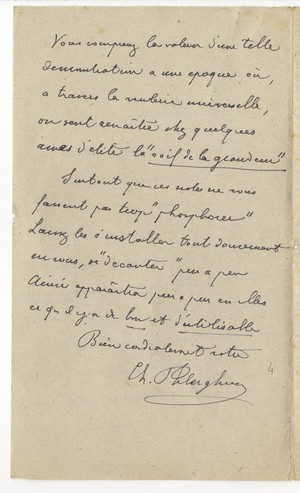 Vous comprenez la valeur d'une telle
demonstration a une epoque où,
a travers la universelle,
on sent renaitre chez quelques
ames d'élite la "soif de la grandeur"
Surtout que ces notes ne vous
fassent pas trop "phosphorer"
Laissez les s'installer tout doucement
en vous, se "decanter" peu a peu
Ainsi apparaitra peu a peu en elles
ce qu'il y a de bon et d'utilisable
Bien cordialement votre
Ch.
4